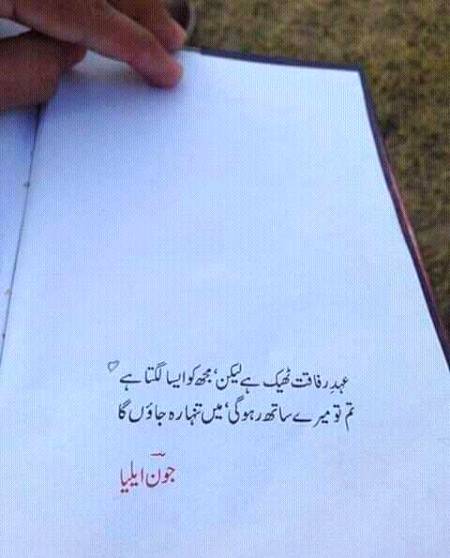 عہدِ رفاقت ٹھیک ہے لیکن، مجھ کو ایسا لگتا ہے
تم تو میرے ساتھ رہو گی، میں تنہا رہ جاؤں گا
جونؔ ایلیا